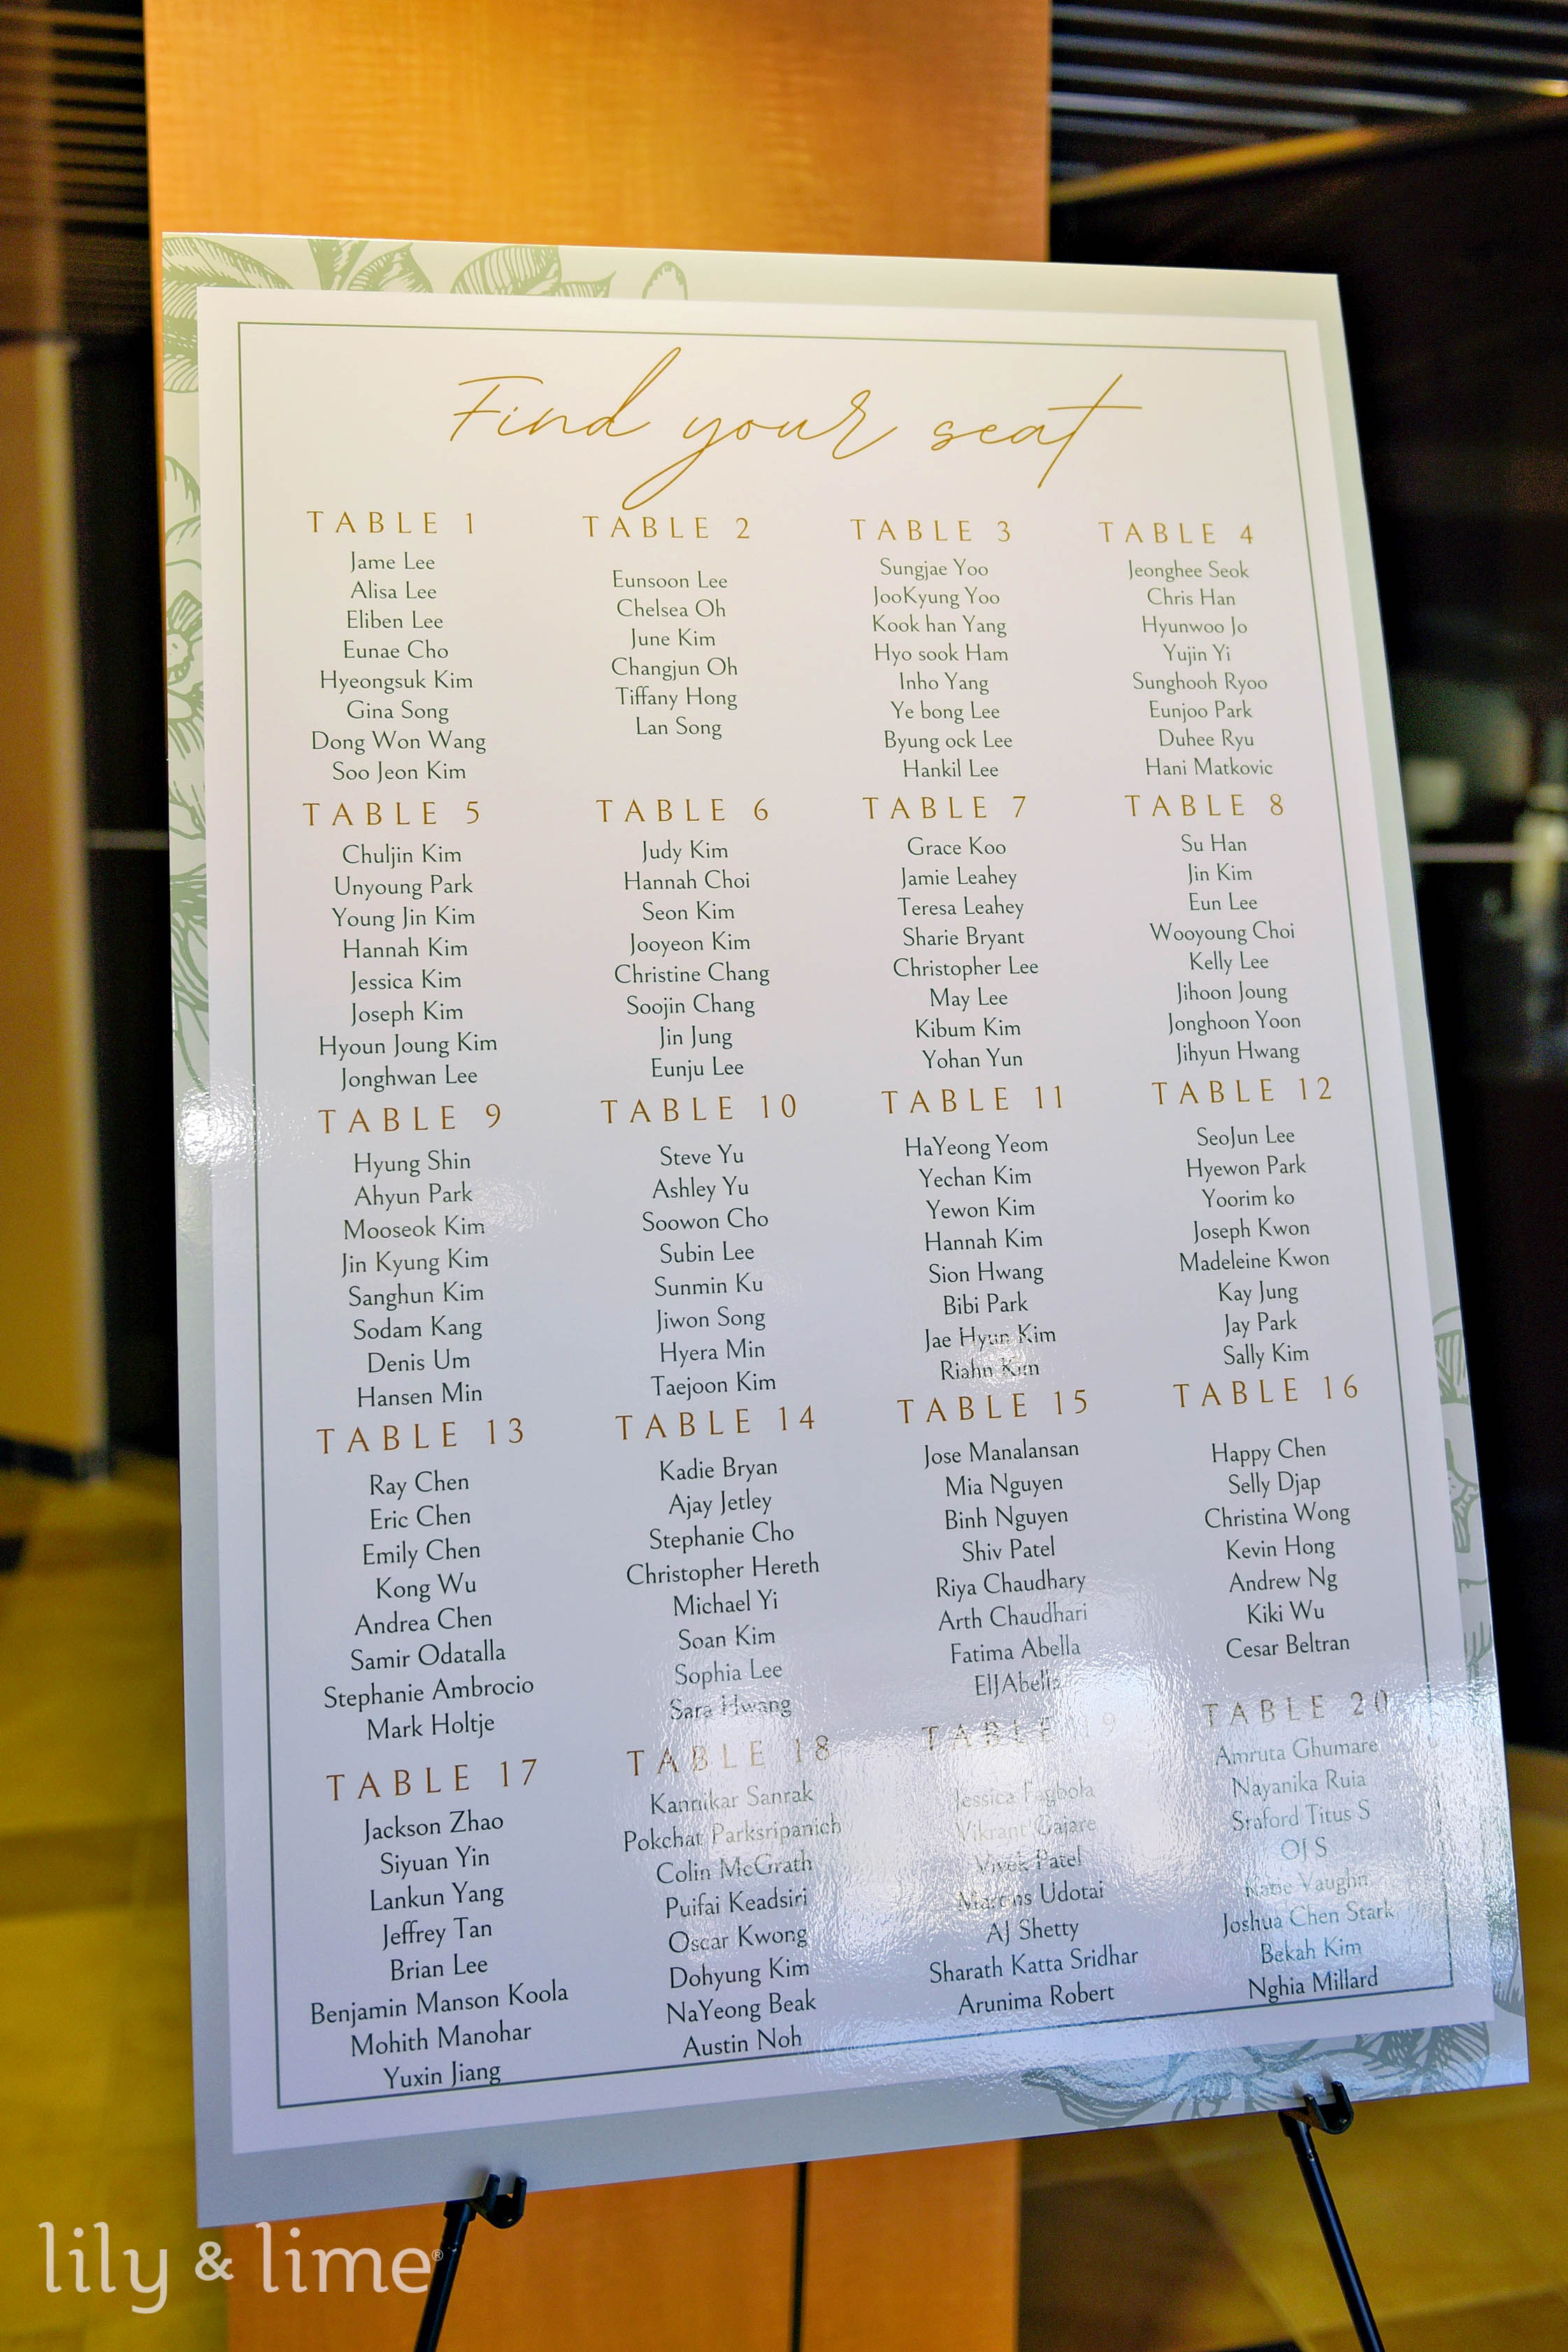 Find your seat
TABLE 1
Jame Lee
Alisa Lee
Eliben Lee
Eunae Cho
Hyeongsuk Kim
Gina Song
Dong Won Wang
Soo Jeon Kim
TABLE 2
Eunsoon Lee
Chelsea Oh
June Kim
Changjun Oh
Tiffany Hong
Lan Song
TABLE 3
Sungjae Yoo
JooKyung Yoo
Kook han Yang
Hyo sook Ham
Inho Yang
Ye bong Lee
Byung ock Lee
Hankil Lee
TABLE 4
Jeonghee Seok
Chris Han
Hyunwoo Jo
Yujin Yi
Sunghooh Ryoo
Eunjoo Park
Duhee Ryu
Hani Matkovic
TABLE 5
Chuljin Kim
Unyoung Park
Young Jin Kim
Hannah Kim
Jessica Kim
Joseph Kim
Hyoun Joung Kim
Jonghwan Lee
TABLE 6
Judy Kim
Hannah Choi
Seon Kim
Jooyeon Kim
Christine Chang
Soojin Chang
Jin Jung
Eunju Lee
TABLE 7
Grace Koo
Jamie Leahey
Teresa Leahey
Sharie Bryant
Christopher Lee
May Lee
Kibum Kim
Yohan Yun
TABLE 8
Su Han
Jin Kim
Eun Lee
Wooyoung Choi
Kelly Lee
Jihoon Joung
Jonghoon Yoon
Jihyun Hwang
TABLE 9
Hyung Shin
Ahyun Park
Mooseok Kim
Jin Kyung Kim
Sanghun Kim
Sodam Kang
Denis Um
Hansen Min
TABLE 10
Steve Yu
Ashley Yu
Soowon Cho
Subin Lee
Sunmin Ku
Jiwon Song
Hyera Min
Taejoon Kim
TABLE 11
HaYeong Yeom
Yechan Kim
Yewon Kim
Hannah Kim
Sion Hwang
Bibi Park
Jae Hyun Kim
Riahn Kim
TABLE 12
SeoJun Lee
Hyewon Park
Yoorim ko
Joseph Kwon
Madeleine Kwon
Kay Jung
Jay Park
Sally Kim
TABLE 13
Ray Chen
Eric Chen
Emily Chen
Kong Wu
Andrea Chen
Samir Odatalla
Stephanie Ambrocio
Mark Holtje
TABLE 14
Kadie Bryan
Ajay Jetley
Stephanie Cho
Christopher Hereth
Michael Yi
Soan Kim
Sophia Lee
Sara Hwang
TABLE 15
Jose Manalansan
Mia Nguyen
Binh Nguyen
Shiv Patel
Riya Chaudhary
Arth Chaudhari
Fatima Abella
TABLE 16
Happy Chen
Selly Djap
Christina Wong
Kevin Hong
Andrew Ng
Kiki Wu
Cesar Beltran
TABLE 17
Jackson Zhao
Siyuan Yin
Lankun Yang
Jeffrey Tan
Brian Lee
Benjamin Manson Koola
Mohith Manohar
Yuxin Jiang
TABLE 18
Kannikar Sanrak
Pokchat Parksripanich
Colin McGrath
Puifai Keadsiri
Oscar Kwong
Dohyung Kim
NaYeong Beak
Austin Noh
TABLE 19
Jessica Fagbola
Vikrant Gajare
Vivek Patel
Udotai
AJ Shetty
Sharath Katta Sridhar
Arunima Robert
TABLE 20
Amruta Ghumare
Nayanika Ruia
Titus S
OJ S
Katie Vaughn
Joshua Chen Stark
Bekah Kim
Nghia Millard
lily & lime®